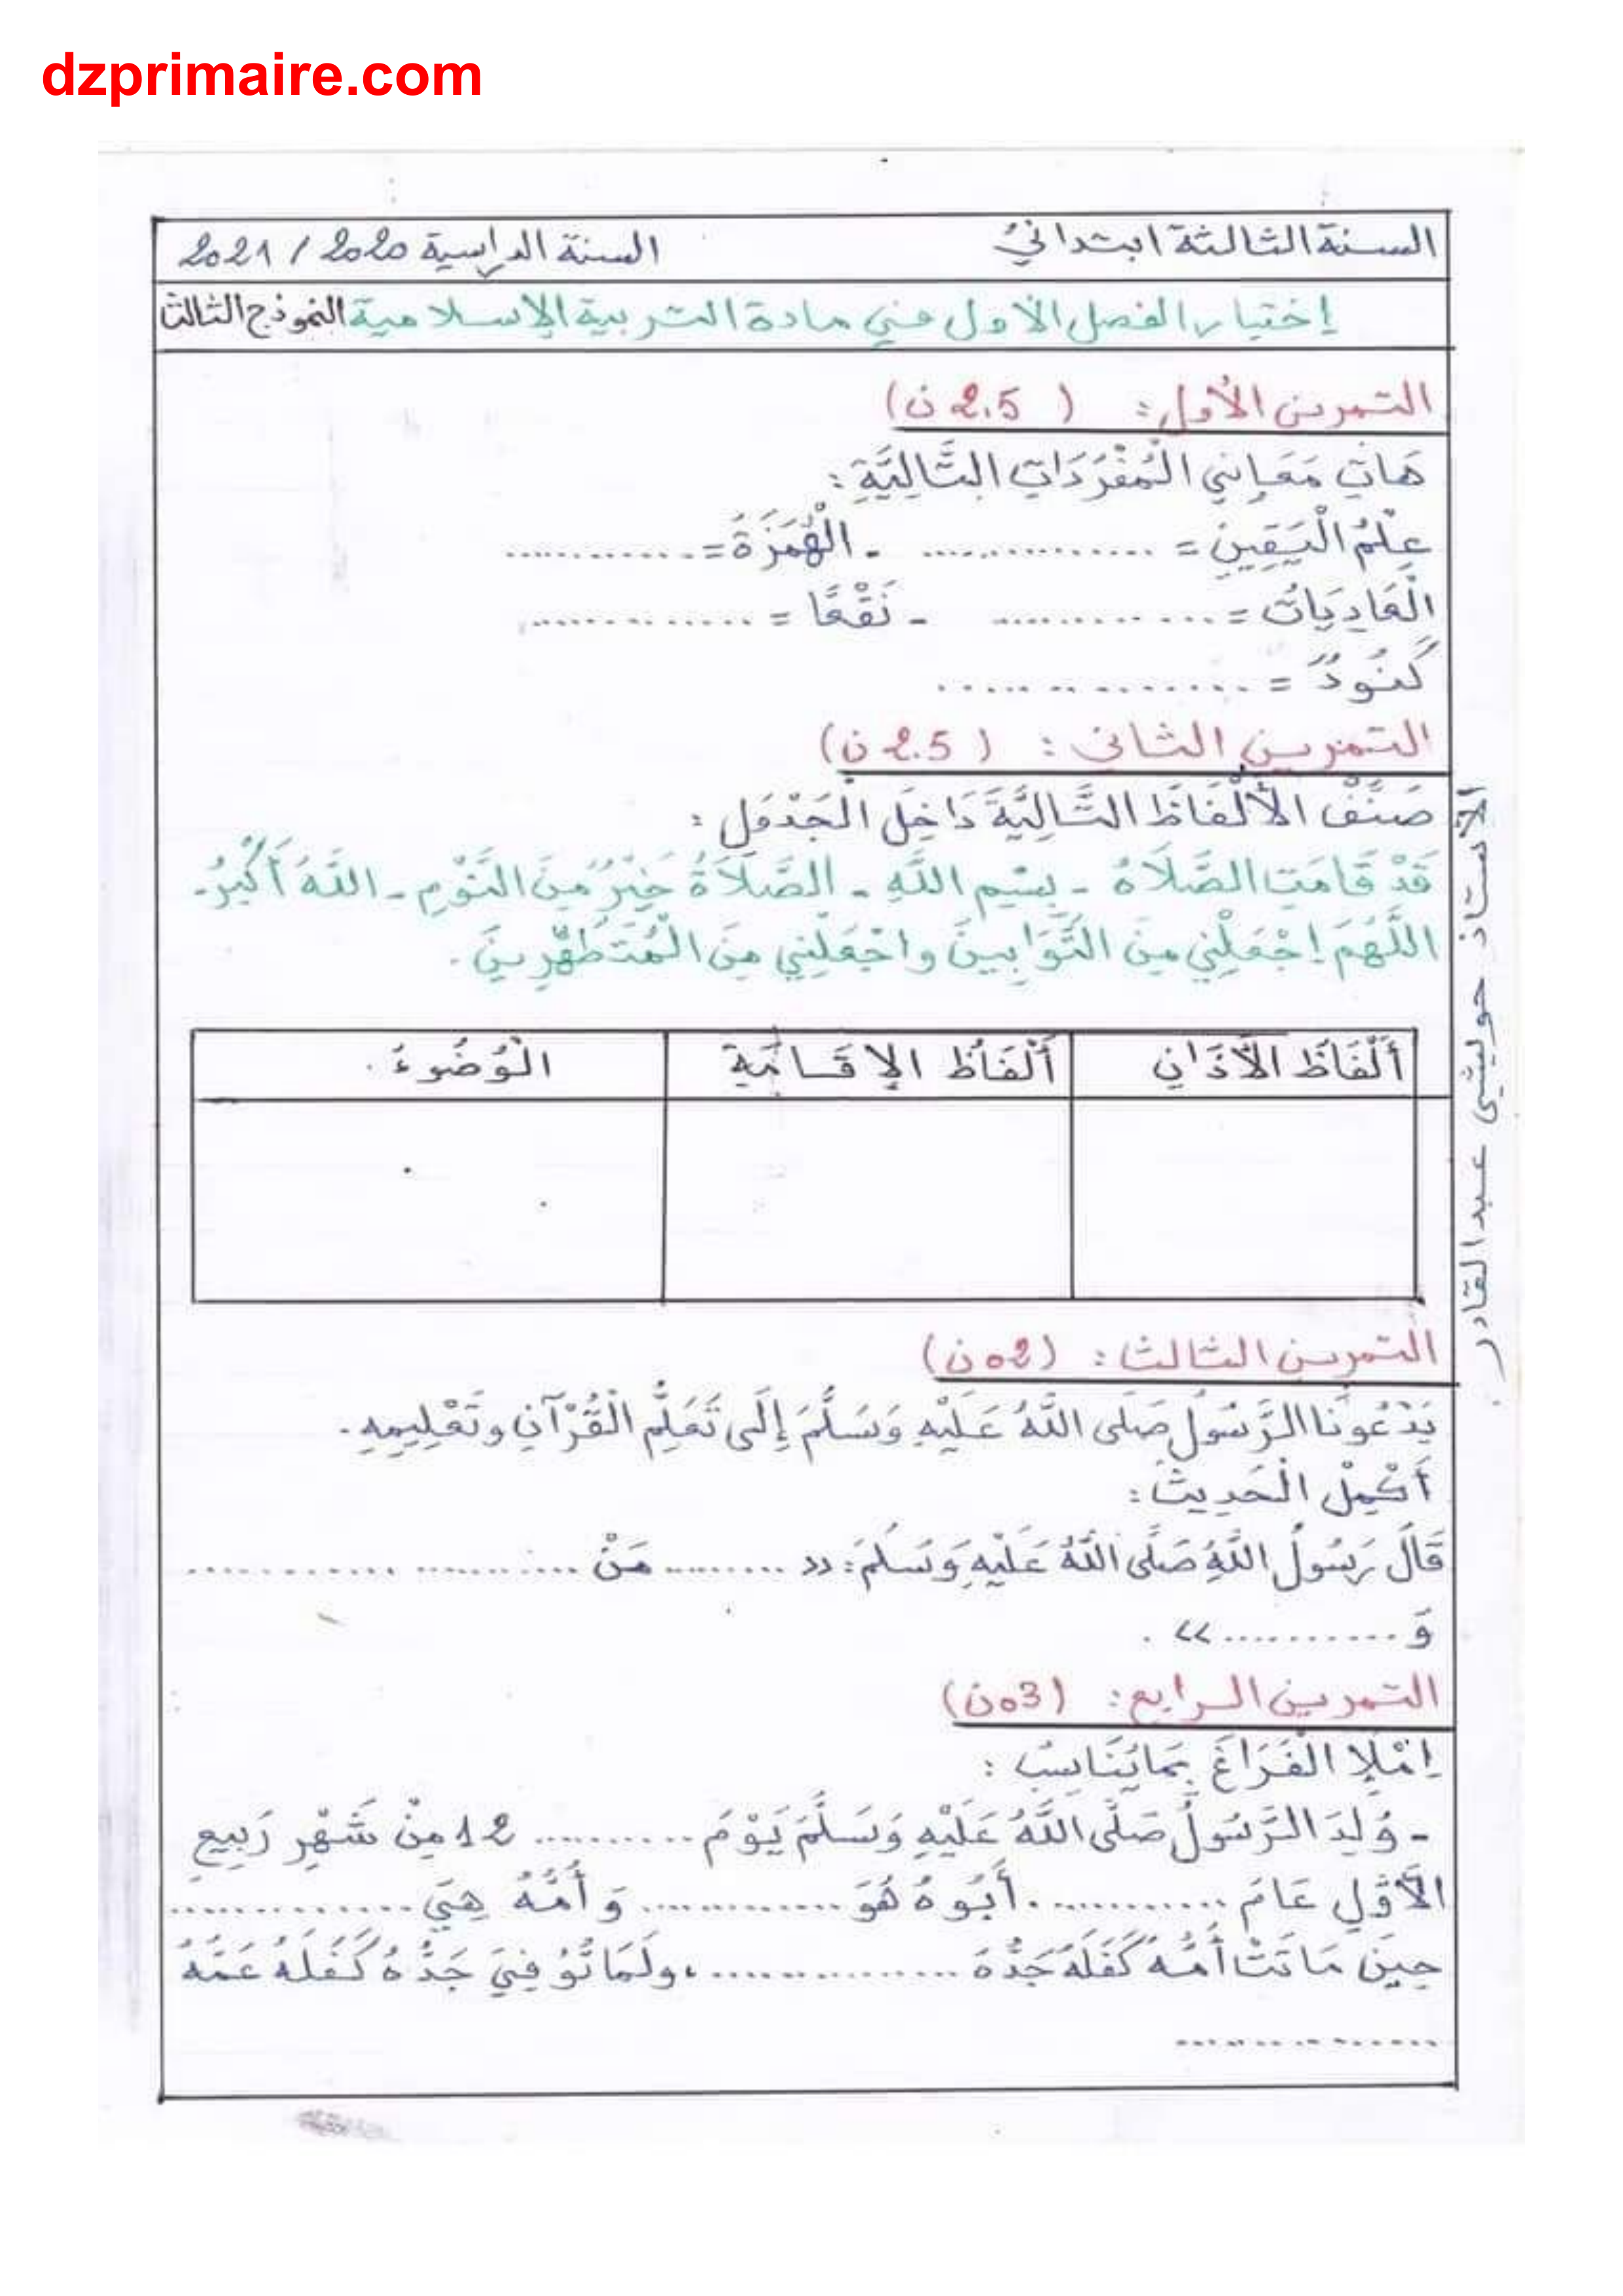 dzprimaire.com
السنة الثالثة ابتدائي السنة الدراسية 2020 / 2021
إختبار الفصل الأول في مادة التربية الإسلامية النموذج الثالث
التمرين الأول: ( 2.5 ن)
هَاتِ مَعَانِي الْمُفْرَدَاتِ التَّالِيَّةِ:
عِلْمُ الْيَقِينِ = .................. - الْهُمَزَةُ = .............
الْعَادِيَاتُ = ................. - نَقْعًا = ................
كَنُودٌ = ...................
التمرين الثاني: ( 2.5 ن)
صَنِّفْ الأَلْفَاظَ التَّالِيَّةَ دَاخِلَ الْجَدْوَلِ :
قَدْ قَامَتِ الصَّلَاةُ - بِسْمِ اللَّهِ - الصَّلَاةُ خَيْرٌ مِنَ النَّوْمِ - اللَّهُ أَكْبَرُ -
اللَّهُمَ إجْعَلْنِي مِنَ التَّوَابِينَ واجْعَلْنِي مِنَ الْمُتَطَهِّرِينَ .
أَلْفَاظُ الأَذَانِ أَلْفَاظُ الإقَامَةِ الْوُضُوءُ .
التمرين الثالث : (02 ن)
يَدْعُونَا الرَّسُولُ صَلَى اللَّهُ عَلَيْهِ وَسَلَّمَ إِلَى تَعَلُّمِ الْقُرْآنِ وتَعْلِيمِهِ .
أَكْمِلْ الْحَدِيثَ :
قَالَ رَسُولُ اللَّهِ صَلَّى اللَّهُ عَلَيْهِ وَسَلَمَ : « ......... مَنْ ..............................
وَ ............ » .
التمرين الرابع : (03 ن)
اِمْلَإِ الْفَرَاغَ بِمَا يُنَاسِبُ :
- وُلِدَ الرَّسُولُ صَلَّى اللَّهُ عَلَيْهِ وَسَلَّمَ يَوْمَ ............ 12 مِنْ شَهْرِ رَبِيعِ
الأَوَّلِ عَامَ ............. . أَبُوهُ هُوَ .............. وَ أُمُّهُ هِيَ ................
حِينَ مَاتَتْ أُمُّهُ كَفَلَهُ جَدُّهُ ................. ، ولَمَا تُوُفِيَ جَدُّهُ كَفَلَهُ عَمُّهُ
.................
الأستاذ حويشي عبد القادر .